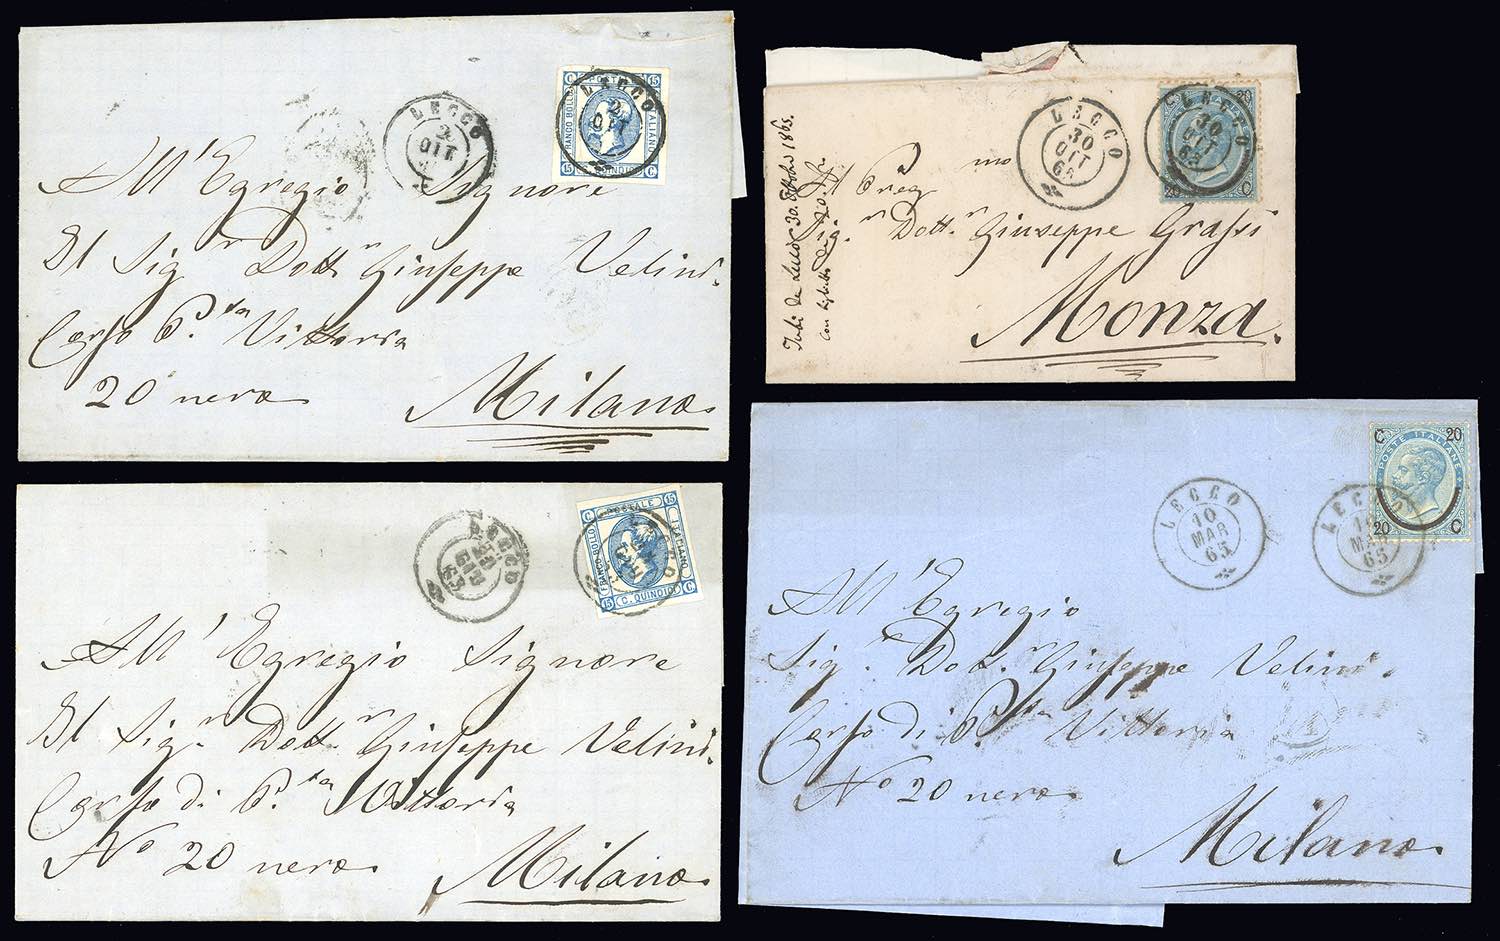 C POSTALE 15
FRANCO BOLLO
ITALIANO
15 C. QUINDICI C
LECCO
2
OTT
LECCO
2
OTT
All' Egregio Signore
Il Sig.r Dott.r Giuseppe Velini.
Corso P.ta Vittoria
20 nero
Milano
LECCO
30
OTT
65
LECCO
30
OTT
65
C 20
20 C
mo
Al Preg
Sig.r Dott.r Giuseppe Grassi
Monza.
da Lecco 30. Ottobre 1865.
C POSTALE 15
FRANCO BOLLO
ITALIANO
15 C. QUINDICI C
LECCO
LECCO
All' Egregio Signore
Il Sig.r Dott.r Giuseppe Velini.
Corso di P.ta Vittoria
No 20 nero
Milano
C 20
POSTE ITALIANE
20 C
LECCO
10
MAR
65
LECCO
10
MAR
65
All' Egregio
Sig.r Dott.r Giuseppe Velini.
Corso di P.ta Vittoria
No 20 nero
Milano